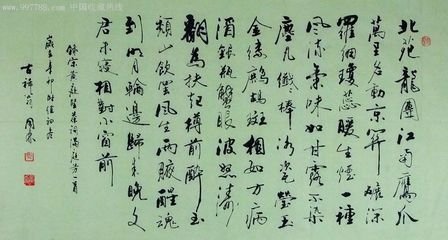 www.997788.com 中国收藏热线
北苑龍團江南鷹爪
萬里名動京關碾深
羅細瓊蕊暖生煙一種
風流氣味如甘露不染
塵凡纖纖捧冰瓷瑩玉
金縷鷓鴣斑相如方病
酒銀瓶蟹眼波怒濤
翻為扶起樽前醉玉
頹山飲罷風生兩腋醒魂
到明月輪邊歸來晚文
君未寢相對小窗前
錄宋黃庭堅茶詞滿庭芳一首
歲在辛卯時值初冬
吉祥